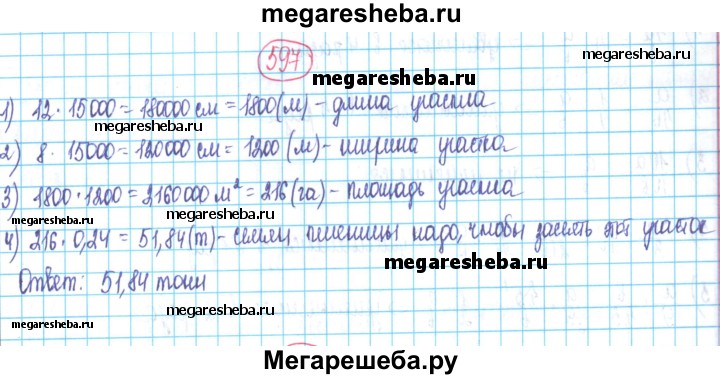 megaresheba.ru
597
megaresheba.ru
1) 12 · 15000 = 180000 см = 1800 (м) - длина участка
megaresheba.ru
2) 8 · 15000 = 120000 см = 1200 (м) - ширина участка
megaresheba.ru
3) 1800 · 1200 = 2160000 м² = 216 (га) - площадь участка
4) 216 · 0,24 = 51,84 (т) - семян пшеницы надо, чтобы засеять этот участок
megaresheba.ru
Ответ: 51,84 тонн
megaresheba.ru
megaresheba.ru
megaresheba.ru
Мегарешеба.ру